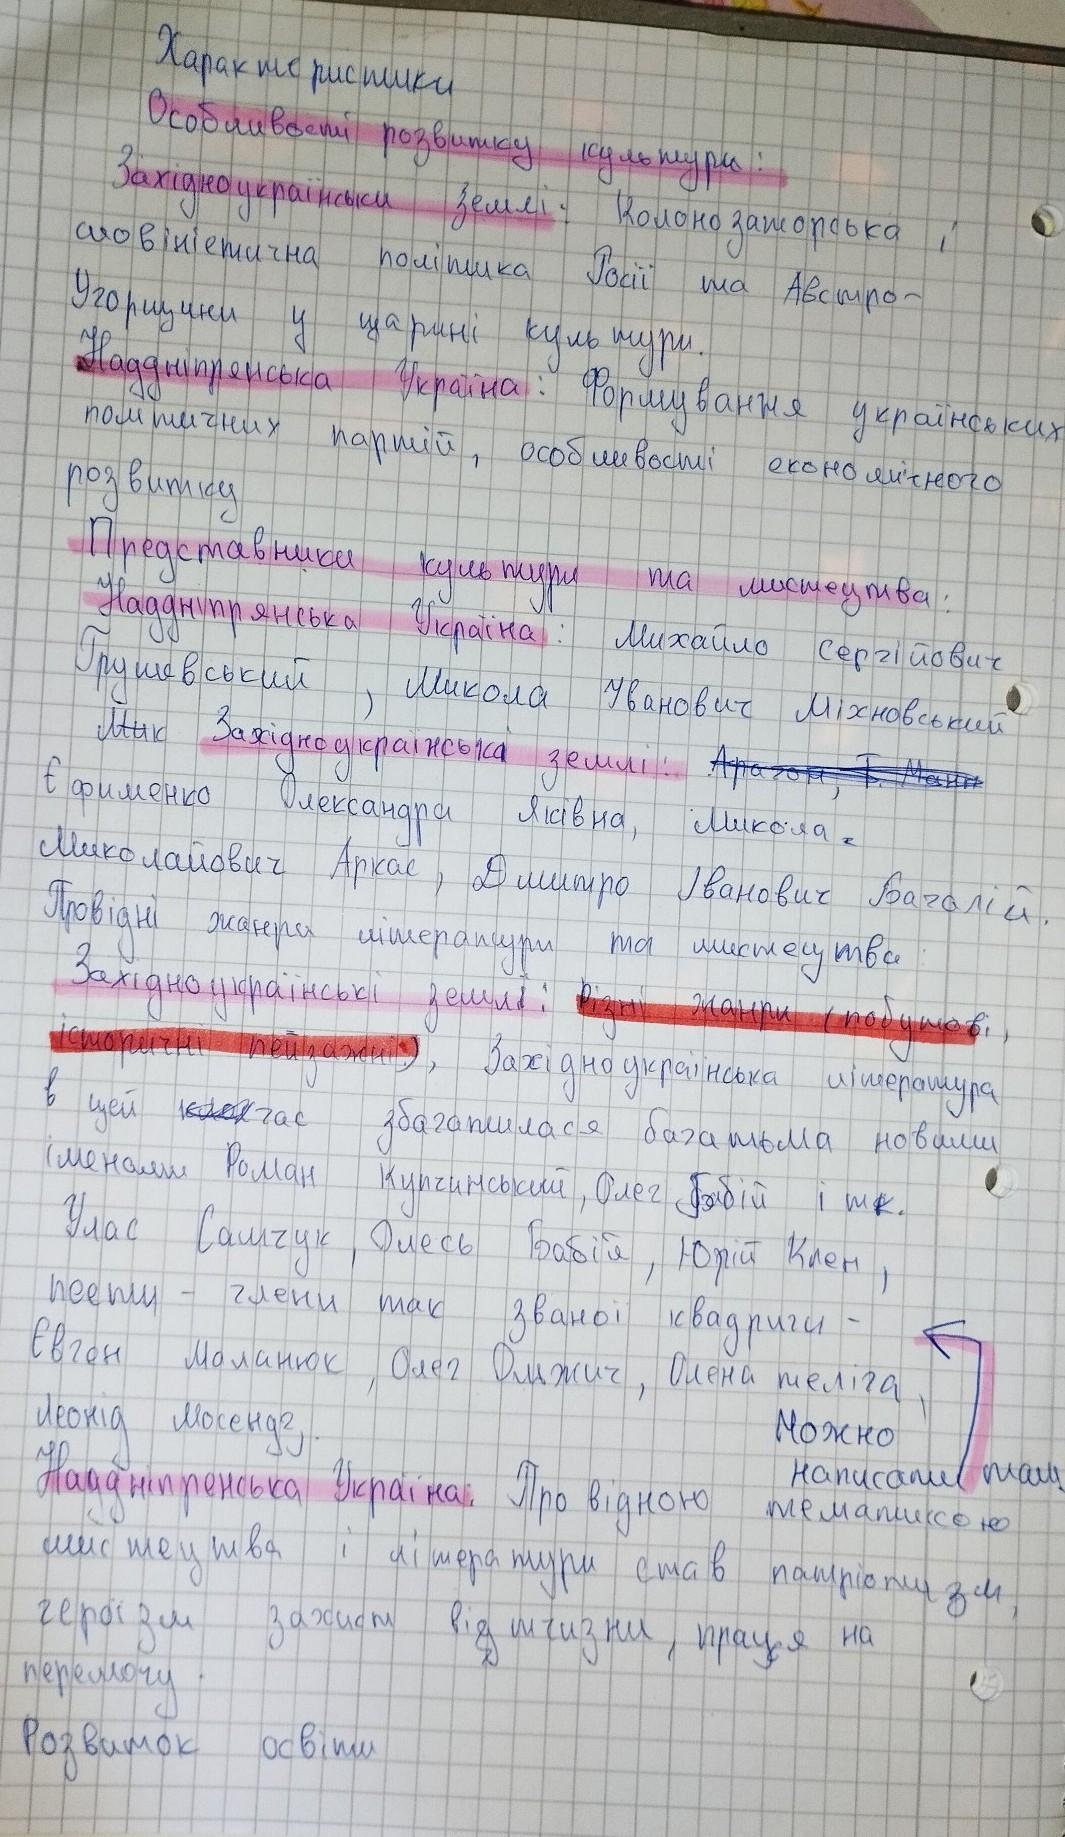 Характеристики
Особливості розвитку культури:
Західноукраїнськи землі: Колонозаторська і
шовіністична політика Росії та Австро-
Угорщини у царині культури.
Наддніпрянська Україна: Формування українських
політичних партій, особливості економічного
розвитку
Представники культури та мистецтва:
Наддніпрянська Україна: Михайло Сергійович
Грушевський, Микола Іванович Міхновський
Західноукраїнські землі:
Єфименко Олександра Яківна, Микола
Миколайович Аркас, Дмитро Іванович Багалій.
Провідні жанри літератури та мистецтва:
Західноукраїнські землі: Різні жанри (побутові,
історичні пейзажні), Західноукраїнська література
в цей час збагатилася багатьма новими
іменами Роман Купчинський, Олег Бабій і тк.
Улас Самчук, Олесь Бабій, Юрій Клен,
поети - члени так званої квадриги -
Євген Маланюк, Олег Ольжич, Олена теліга,
Леонід Мосендз.
Можно
написати там
Наддніпренська Україна: Провідною тематикою
мистецтва і літератури став патріотизм,
героїзм захист відтчизни, праця на
перемогу.
Розвиток освіти